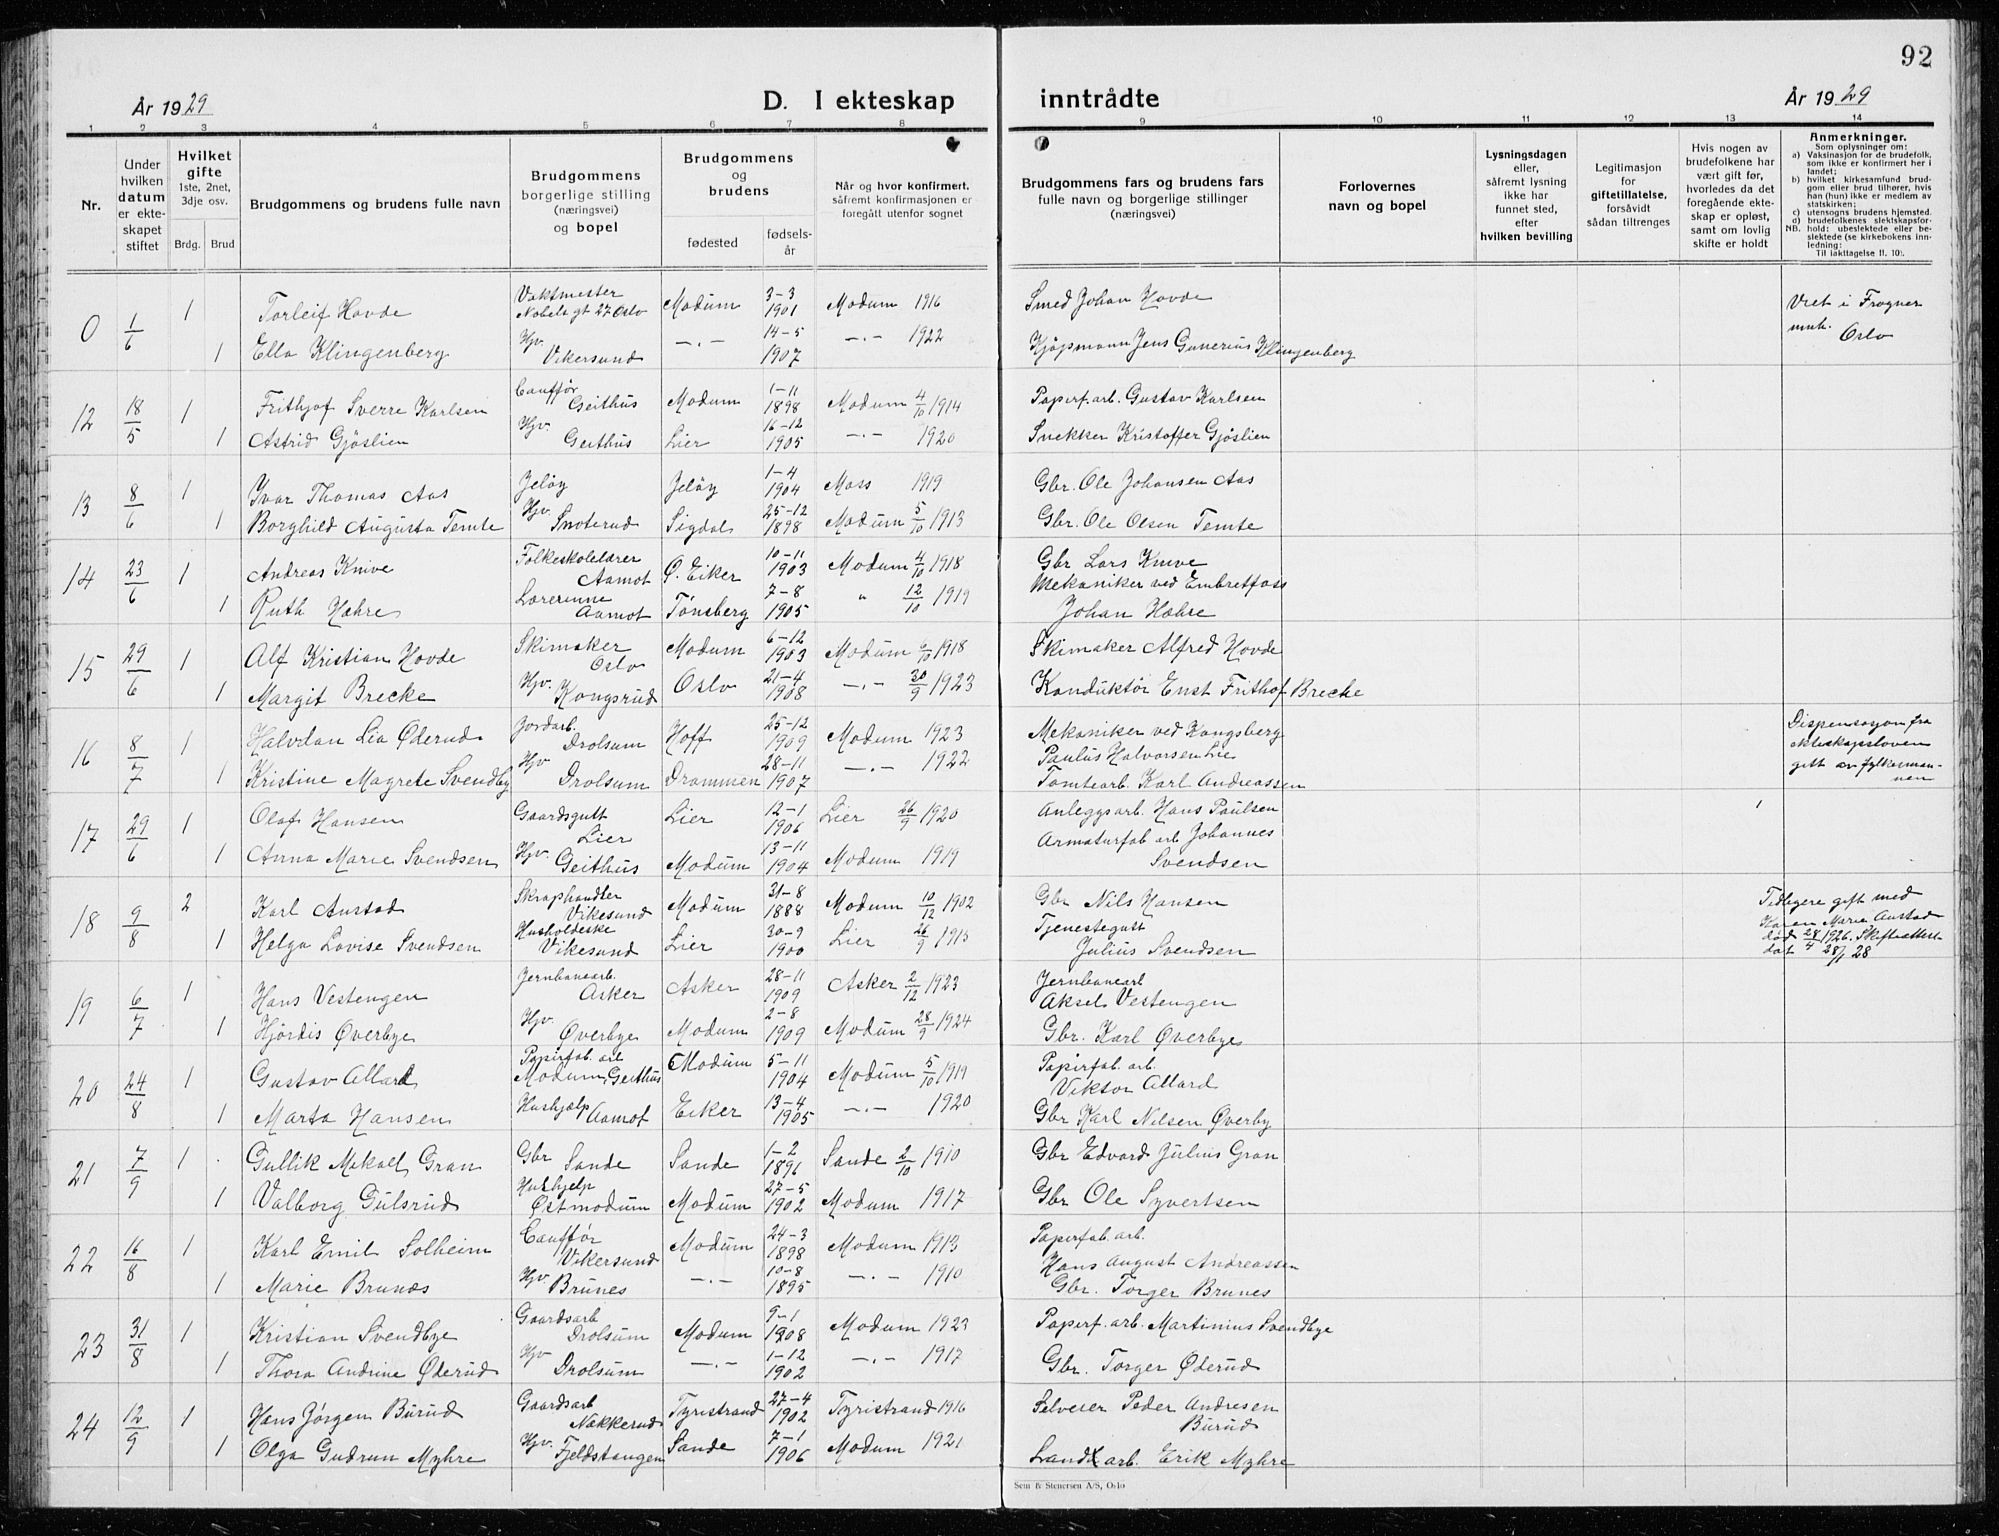 92
År 1929
D. I ekteskap inntrådte
År 1929
1 2 3 4 5 6 7 8 9 10 11 12 13 14
Nr.
Under hvilken datum er ekteskapet stiftet
Hvilket gifte
1ste, 2net, 3dje osv.
Brdg. Brud
Brudgommens og brudens fulle navn
Brudgommens borgerlige stilling (næringsvei) og bopel
Brudgommens og brudens
fødested
fødselsår
Når og hvor konfirmert, såfremt konfirmasjonen er foregått utenfor sognet
Brudgommens fars og brudens fars fulle navn og borgerlige stillinger (næringsvei)
Forlovernes navn og bopel
Lysningsdagen eller, såfremt lysning ikke har funnet sted, efter hvilken bevilling
Legitimasjon for giftetillatelse, forsåvidt sådan tiltrenges
Hvis nogen av brudefolkene har vært gift før, hvorledes da det foregående ekteskap er opløst, samt om lovlig skifte er holdt
Anmerkninger.
Som oplysninger om:
a) Vaksinasjon for de brudefolk, som ikke er konfirmert her i landet;
b) hvilket kirkesamfund brudgom eller brud tilhører, hvis han (hun) ikke er medlem av statskirken;
c) utensogns brudens hjemsted.
d) brudefolkenes slektskapsforhold: ubeslektede eller beslektede (se kirkebokens innledning:
NB.
Til iakttagelse II. 10).
0 1/6 1 Torleif Hovde Vaktmester Nobels gt 27 Oslo Modum 3-3 1901 Modum 1916 Smed Johan Hovde Viet i Frogner
menh. Oslo
1 Ella Klingenberg Hjv. Vikersund -.- 14-5 1907 -.- 1922 Kjøpmann Jens Gunerius Klingenberg
12 18/5 1 Frithjof Sverre Karlsen Cauffør Geithus Modum 1-11 1898 Modum 4/10 1914 Papirf. arb. Gustav Karlsen
1 Astrid Gjøslien Hjv. Geithus Lier 16-12 1905 -.- 1920 Snekker Kristoffer Gjöslien
13 8/6 1 Ivar Thomas Aas Jeløy Jeløy 1-4 1904 Moss 1919 Gbr. Ole Johansen Aas
1 Borghild Augusta Temte Hjv. Snoterud Sigdal 25-12 1898 Modum 5/10 1913 Gbr. Ole Olsen Temte
14 23/6 1 Andreas Knive Folkeskolelærer Aamot Ø. Eiker 10-11 1903 Modum 4/10 1918 Gbr Lars Knive
1 Ruth Hæhre Lærerinne Aamot Tønsberg 7-8 1905 " 12/10 1919 Mekaniker ved Embretfoss
Johan Hæhre
15 29/6 1 Alf Kristian Hovde Skimaker Oslo Modum 6-12 1903 Modum 6/10 1918 Skimaker Alfred Hovde
1 Margit Brecke Hjv. Kongsrud Oslo 21-4 1908 -.- 30/9 1923 Konduktör Enst Frithof Brecke
16 8/7 1 Halvdan Lia Øderud Jordarb. Drolsum Hoff 25-12 1909 Modum 1923 Mekaniker ved Kongsberg
Paulus Halvorsen Lie
Dispensasjon fra
ekteskapsloven
gitt av fylkesman-
nen
1 Kristine Magrete Svendby Hjv Drolsum Drammen 28-11 1907 -.- 1922 Tomtearb. Karl Andreassen
17 29/6 1 Olaf Hansen Gaardsgutt Lier Lier 12-1 1906 Lier 26/9 1920 Anleggsarb. Hans Paulsen
1 Anna Marie Svendsen Hjv. Geithus Modum 13-11 1904 Modum 1919 Armaturfab arb Johannes
Svendsen
18 9/8 2 Karl Austad Skraphandler Vikesund Modum 31-8 1888 Modum 10/12 1902 Gbr Nils Hansen
Tidligere gift med
Karen Marie Austad
død 28/4 1926. Skifteattest
dat 28/1 28
1 Helga Lovise Svendsen Husholderske Vikesund Lier 30-9 1900 Lier 26/9 1915 Tjenestegutt
Julius Svendsen
19 6/7 1 Hans Vestengen Jernbanearb. Asker Asker 28-11 1909 Asker 2/12 1923 Jernbanearb
Aksel Vestengen
1 Hjördis Øverbye Hjv. Øverbye Modum 2-8 1909 Modum 28/9 1924 Gbr. Karl Øverbye
20 24/8 1 Gustav Allard Papirfab. arb Modum, Geithus Modum 5-11 1904 Modum 5/10 1919 Papirfab. arb.
Viktor Allard
1 Marta Hansen Hushjælp Aamot Eiker 13-4 1905 -.- 1920 Gbr Karl Nilsen Øverby
21 7/9 1 Gullik Mikael Gran Gbr Sande Sande 1-2 1896 Sande 2/10 1910 Gbr Edvard Julius Gran
1 Valborg Gulsrud Hushjelp Østmodum Modum 27-5 1902 Modum 1917 Gbr Ole Syvertsen
22 16/8 1 Karl Emil Solheim Cauffør Vikersund Modum 24-3 1898 Modum 1913 Papirfab. arb.
Hans August Andreassen
1 Marie Brunæs Hjv Brunes -.- 10-8 1895 -.- 1910 Gbr. Torger Brunes
23 31/8 1 Kristian Svendbye Gaardsarb Drolsum Modum 9-1 1908 Modum 1923 Papirf. arb. Martinius Svendbye
1 Thora Andrine Øderud Hjv Drolsum -.- 1-12 1902 -.- 1917 Gbr. Torger Øderud
24 12/9 1 Hans Jørgen Burud Gaardsarb Nakkerud Tyristrand 27-4 1902 Tyristrand 1916 Selveier Peder Andresen
Burud
1 Olga Gudrun Myhre Hjv. Fjeldstangen Sande 7-1 1906 Modum 1921 Land arb. Erik Myhre
Sem & Stenersen A/S, Oslo